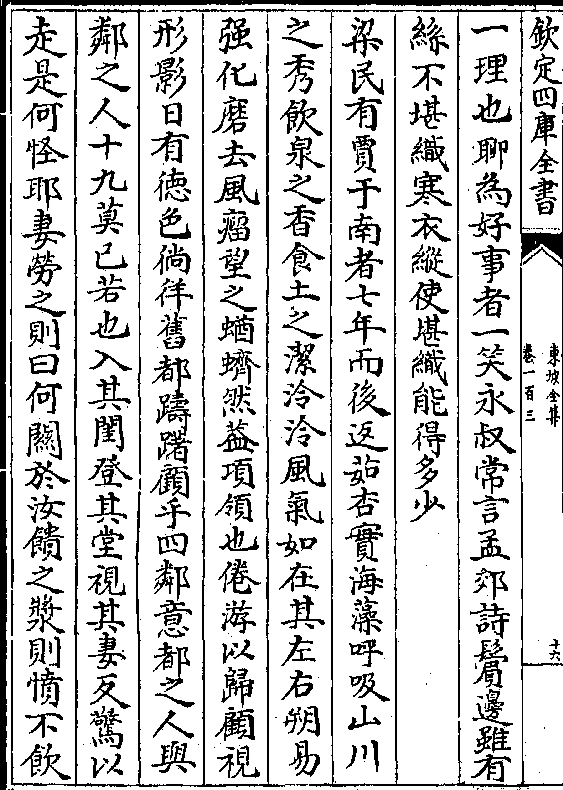 欽定四庫全書
東坡全集
卷一百三
十六
一理也聊為好事者一笑永叔常言孟郊詩鬢邊雖有
絲不堪織寒衣縱使堪織能得多少
梁民有賈于南者七年而後返茹杏實海藻呼吸山川
之秀飲泉之香食土之潔泠泠風氣如在其左右朔易
强化磨去風瘤望之蝤蠐然葢項領也倦游以歸顧視
形影日有德色徜徉舊都躊躇顧乎四鄰意都之人與
鄰之人十九莫已若也入其閨登其堂視其妻反驚以
走是何怪耶妻勞之則曰何關於汝饋之漿則憤不飲